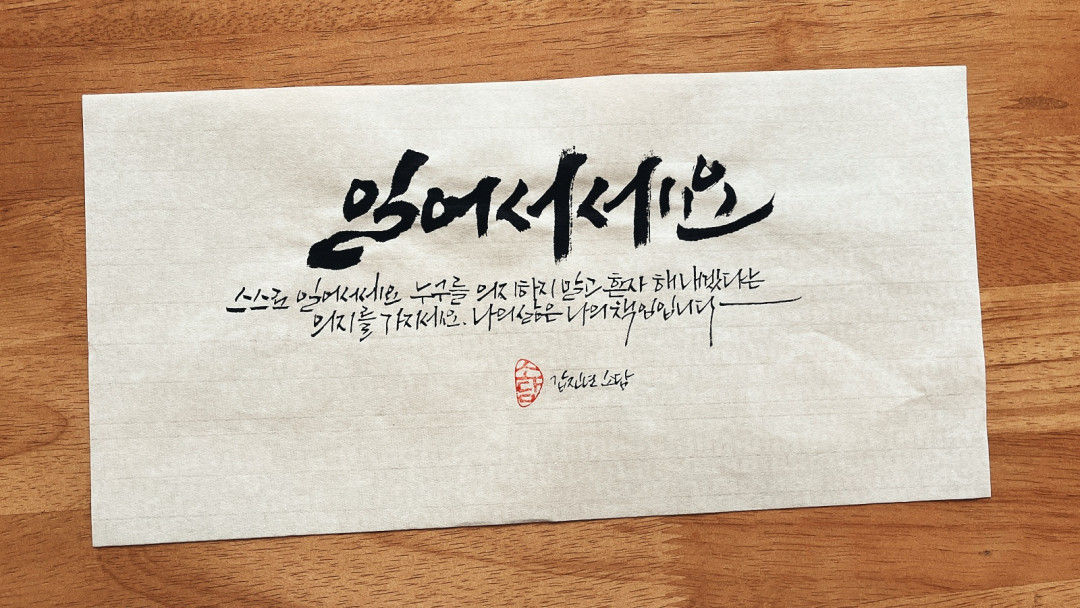 일어서세요
스스로 일어서세요 누구를 의지하지 말고 혼자 해내겠다는
의지를 가지세요. 나의 삶은 나의 책임입니다
소담
갑진년 소담